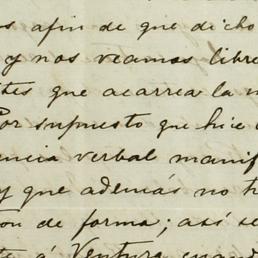 afin de que dicho
y nos veamos libre
que acarrea la
Por supuesto que hice
verbal manif
y que además no
de forma; así se
á Ventura cuando